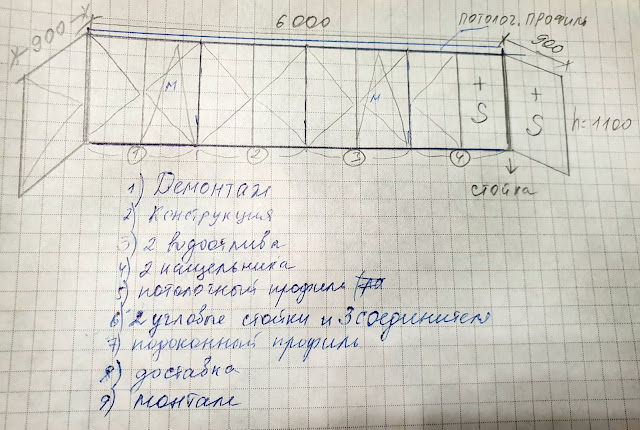 6000
потолог. профиль
900
900
м
м
+
S
+
S
h=1100
1
2
3
4
стойка
1) Демонтаж
2) Конструкция
3) 2 водоотлива
4) 2 нащельника
5) потолочный профиль
6) 2 угловые стойки и 3 соединителя
7) подоконный профиль
8) доставка
9) монтаж